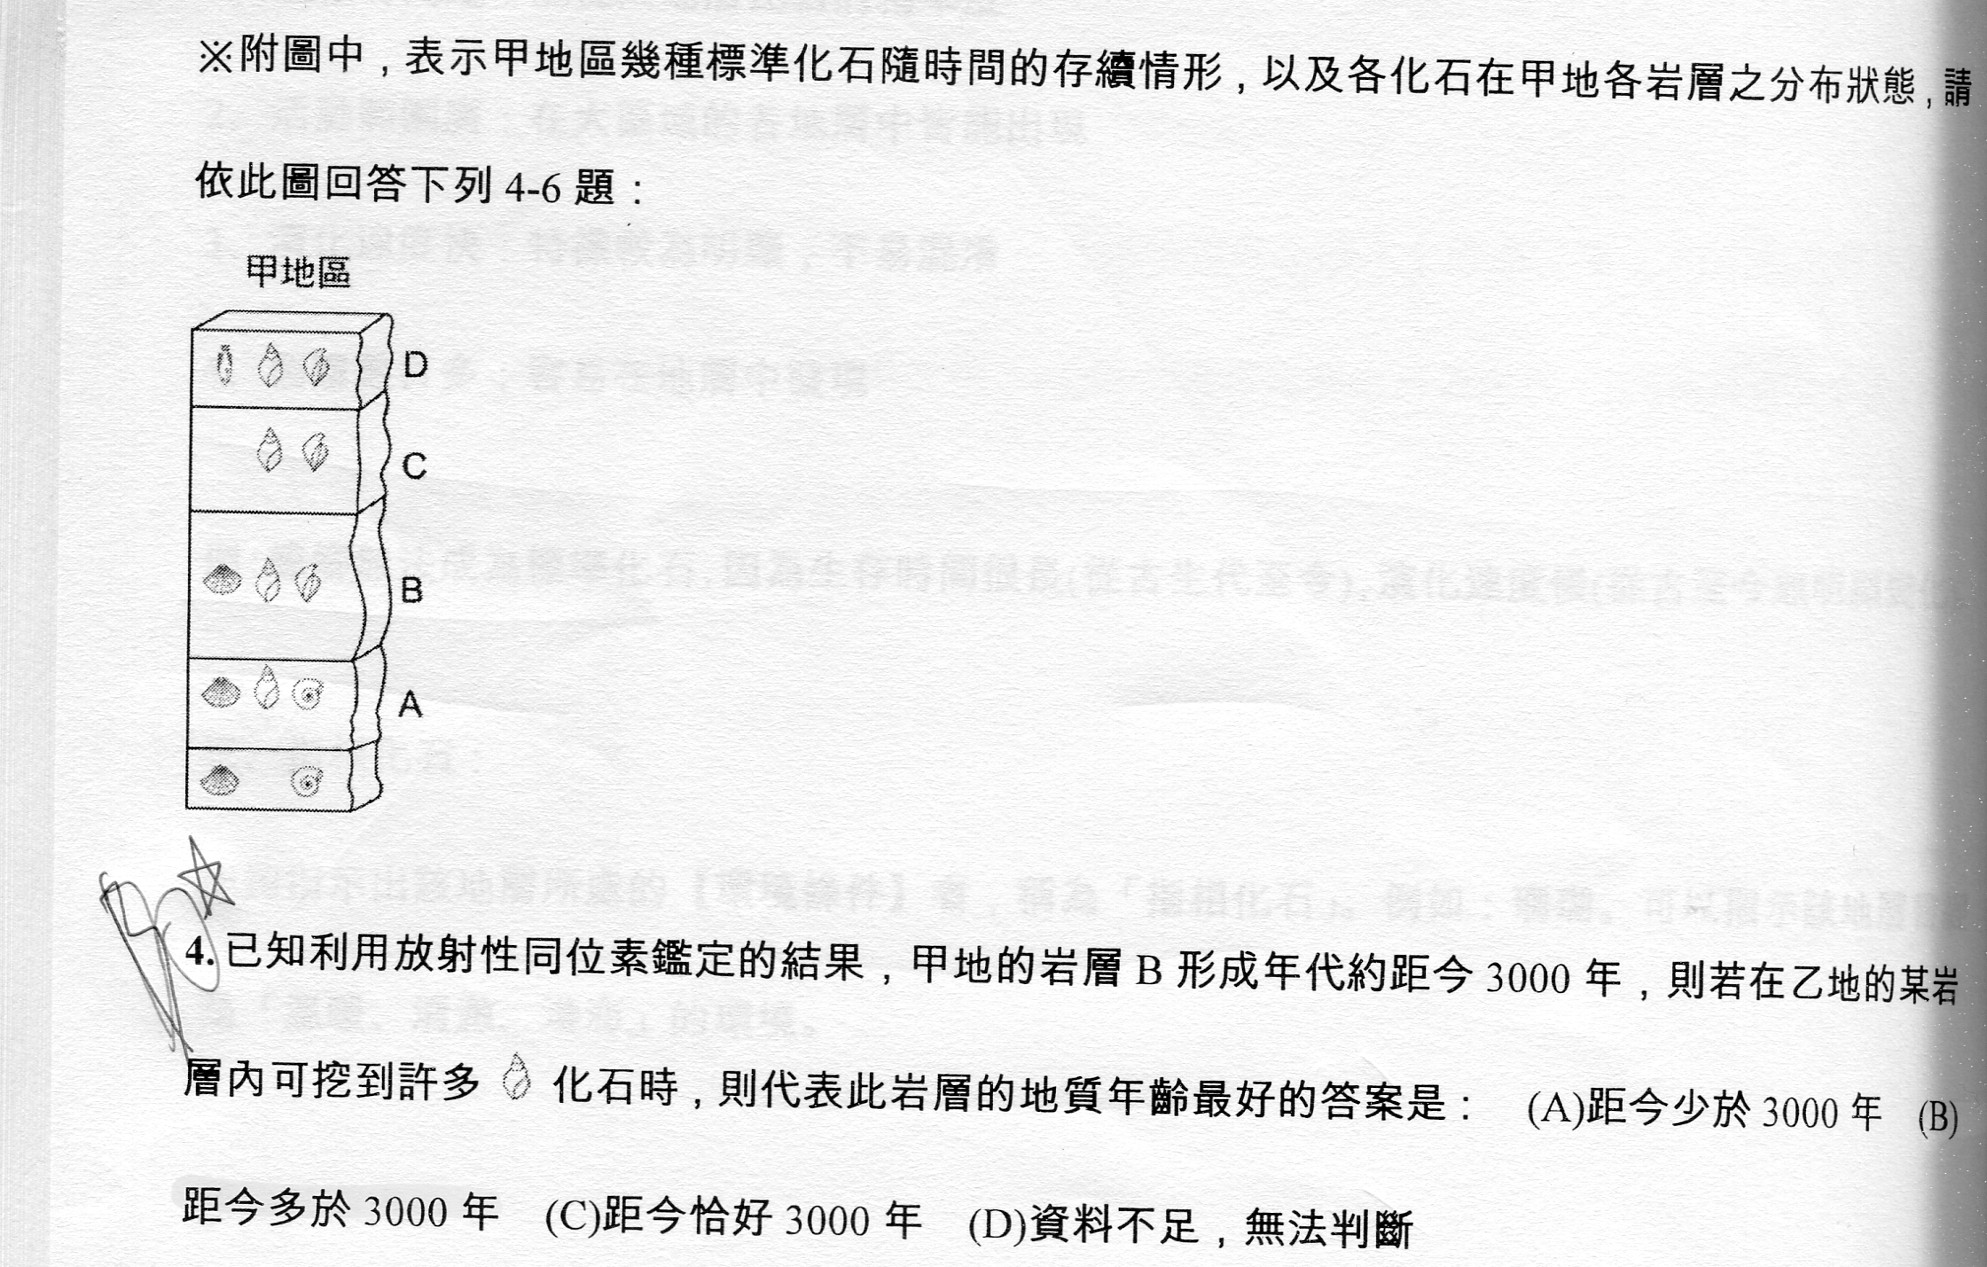 ※附圖中，表示甲地區幾種標準化石隨時間的存續情形，以及各化石在甲地各岩層之分布狀態，請
依此圖回答下列 4-6 題：
甲地區
D
C
B
A
4.已知利用放射性同位素鑑定的結果，甲地的岩層 B 形成年代約距今 3000 年，則若在乙地的某岩
層內可挖到許多 化石時，則代表此岩層的地質年齡最好的答案是： (A)距今少於 3000 年 (B)
距今多於 3000 年 (C)距今恰好 3000 年 (D)資料不足，無法判斷